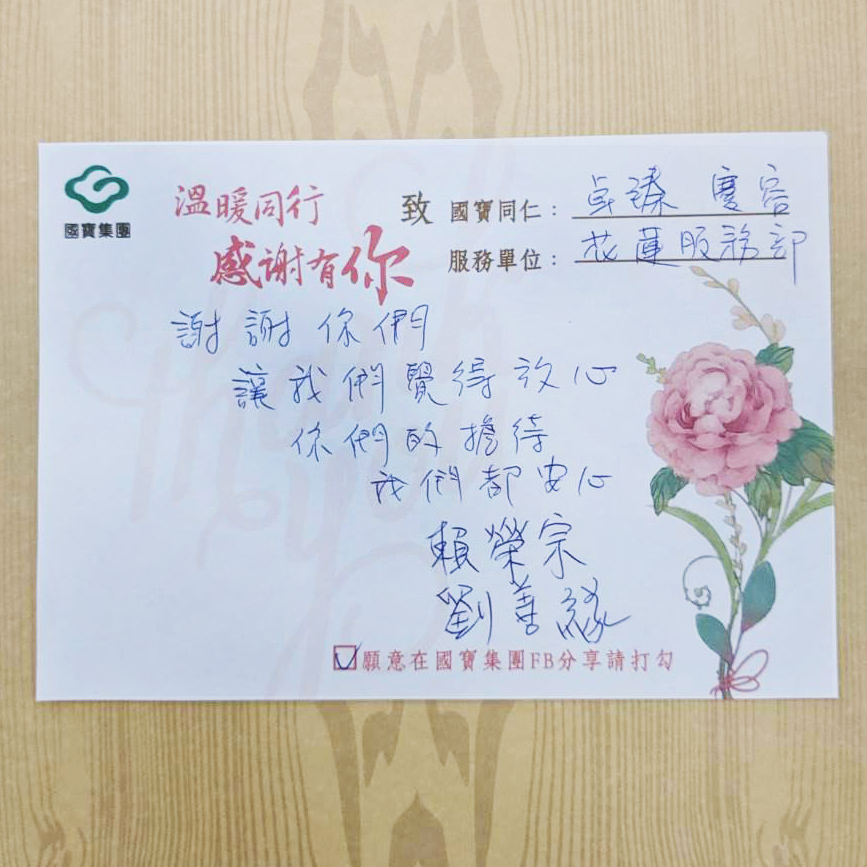 國寶集團
溫暖同行
感謝有你
致 國寶同仁： 卓臻 慶容
服務單位： 花蓮服務部
謝謝你們
讓我們覺得放心
你們的擔待
我們都安心
賴榮宗
劉善緣
願意在國寶集團FB分享請打勾